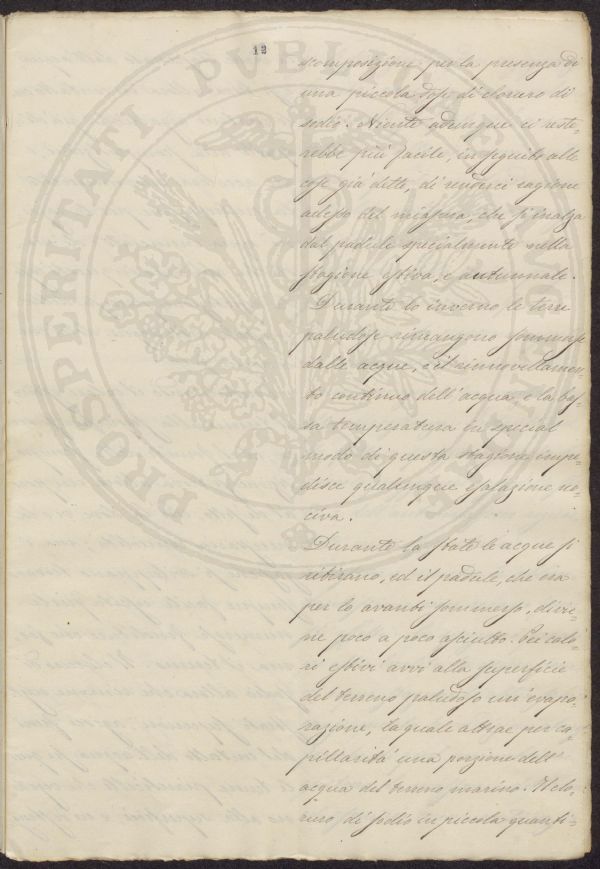 12
scomposizione per la presenza di
una piccola dose di cloruro di
sodio. Niente adunque ci reste-
rebbe più facile, in seguito alle
cose già dette, di renderci ragione
adesso del miasma, che s'inalza
dal padule specialmente nella
stagione estiva, e autunnale.
Durante lo inverno, le terre
paludose rimangono sommerse
dalle acque, e il rinnovellamen-
to continuo dell'acqua e la bas-
sa temperatura in special
modo di questa stagione impe-
disce qualunque esalazione no-
civa.
Durante la state le acque si
ritirano, ed il padule, che era
per lo avanti sommerso, divie-
ne poco a poco asciutto. Pei calo-
ri estivi avvi alla superficie
del terreno paludoso un'evapo-
razione, la quale attrae per ca-
pillarità una porzione dell'
acqua del terreno marino. Il clo-
ruro di sodio in piccola quanti-
PROSPERITATI PVBLICAE